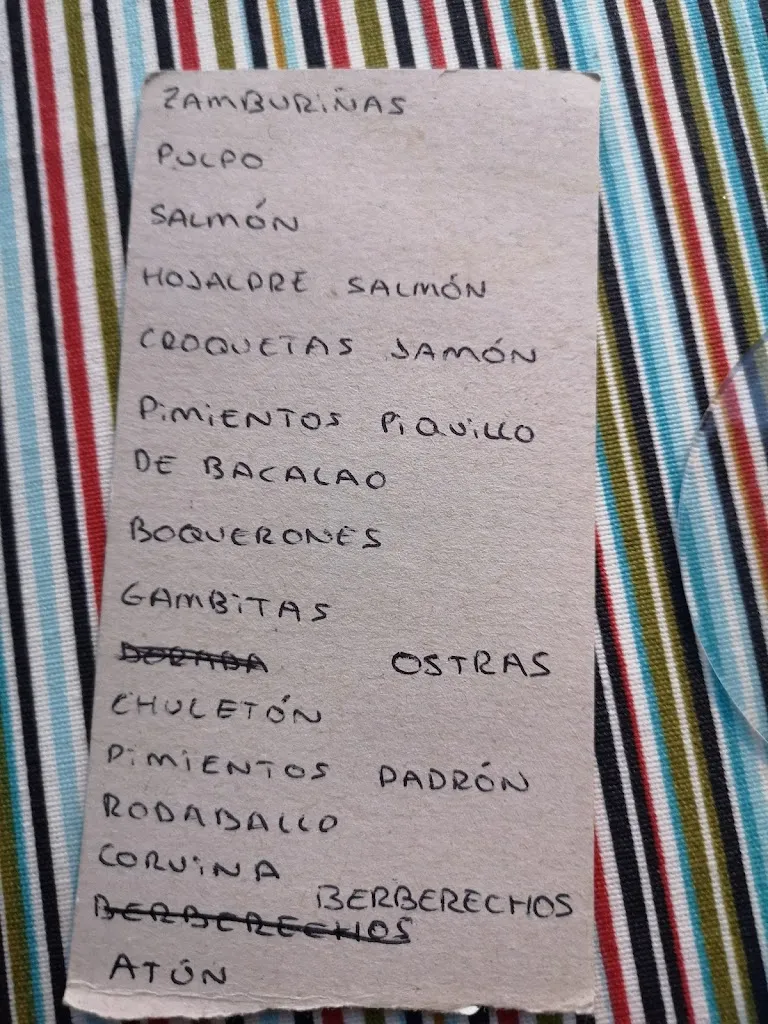 ZAMBURIÑAS
PULPO
SALMÓN
HOJALDRE SALMÓN
CROQUETAS JAMÓN
PIMIENTOS PIQUILLO
DE BACALAO
BOQUERONES
GAMBITAS
DORADA OSTRAS
CHULETÓN
PIMIENTOS PADRÓN
RODABALLO
CORVINA
BERBERECHOS
BERBERECHOS
ATÚN